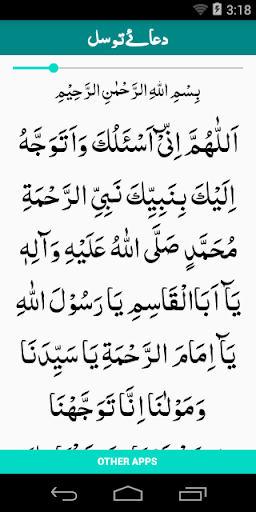 3:18
دعائے توسل
بِسْمِ اللهِ الرَّحْمٰنِ الرَّحِيْمِ
اَللّٰهُمَّ اِنِّيْٓ اَسْئَلُكَ وَاَتَوَجَّهُ
اِلَيْكَ بِنَبِيِّكَ نَبِيِّ الرَّحْمَةِ
مُحَمَّدٍ صَلَّى اللهُ عَلَيْهِ وَآلِهٖ
يَآ اَبَاالْقَاسِمِ يَا رَسُوْلَ اللهِ
يَآ اِمَامَ الرَّحْمَةِ يَا سَيِّدَنَا
وَمَوْلٰنَا اِنَّا تَوَجَّهْنَا
OTHER APPS